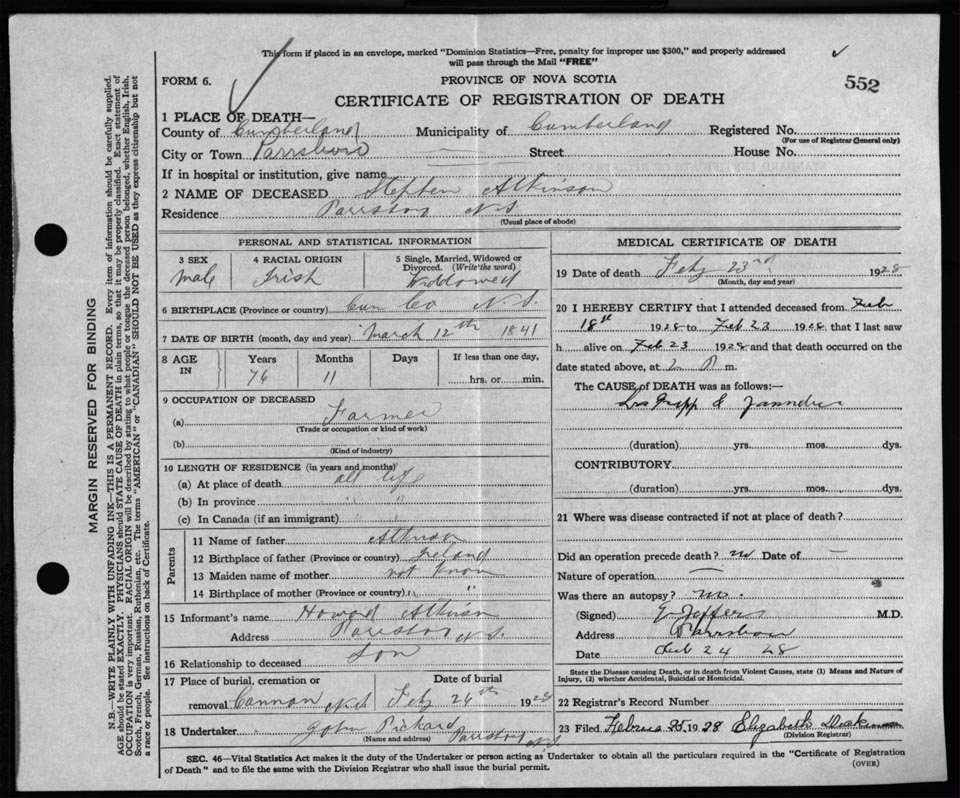 This form if placed in an envelope, marked "Dominion Statistics—Free, penalty for improper use $300," and properly addressed
will pass through the Mail "FREE"
FORM 6.
PROVINCE OF NOVA SCOTIA
552
CERTIFICATE OF REGISTRATION OF DEATH
1 PLACE OF DEATH—
County of Cumberland Municipality of Cumberland Registered No.
(For use of Registrar General only)
City or Town Parrsboro Street House No.
If in hospital or institution, give name
2 NAME OF DECEASED Stephen Atkinson
Residence Parrsboro N.S.
(Usual place of abode)
PERSONAL AND STATISTICAL INFORMATION
3 SEX 4 RACIAL ORIGIN 5 Single, Married, Widowed or
Divorced. (Write the word)
Male Irish Widdowed
6 BIRTHPLACE (Province or country) Cum Co N.S.
7 DATE OF BIRTH (month, day and year) March 12th 1841
8 AGE IN Years Months Days If less than one day,
76 11 hrs. or min.
9 OCCUPATION OF DECEASED
(a) Farmer
(Trade or occupation or kind of work)
(b)
(Kind of industry)
10 LENGTH OF RESIDENCE (in years and months)
(a) At place of death all life
(b) In province " "
(c) In Canada (if an immigrant) " "
Parents
11 Name of father Atkinson
12 Birthplace of father (Province or country) Ireland
13 Maiden name of mother not know
14 Birthplace of mother (Province or country) " "
15 Informant's name Howard Atkinson
Address Parrsboro N.S.
16 Relationship to deceased Son
17 Place of burial, cremation or Date of burial
removal Cannon Feby 26th 1928
18 Undertaker John Pickard Parrsboro N.S.
(Name and address)
MEDICAL CERTIFICATE OF DEATH
19 Date of death Feby 23rd 1928
(Month, day and year)
20 I HEREBY CERTIFY that I attended deceased from Feb
18th 1928 to Feb 23 1928 that I last saw
h alive on Feb 23 1928 and that death occurred on the
date stated above, at 2 P m.
The CAUSE of DEATH was as follows:—
La Grippe & Jaundice
(duration) yrs. mos. dys.
CONTRIBUTORY
(duration) yrs. mos. dys.
21 Where was disease contracted if not at place of death?
Did an operation precede death? no Date of —
Nature of operation —
Was there an autopsy? no.
(Signed) Jeffers M.D.
Address Parrsboro
Date Feb 24 28
State the Disease causing Death, or in death from Violent Causes, state (1) Means and Nature of
Injury, (2) whether Accidental, Suicidal or Homicidal.
22 Registrar's Record Number
23 Filed 1928 Elizabeth
(Division Registrar)
SEC. 46—Vital Statistics Act makes it the duty of the Undertaker or person acting as Undertaker to obtain all the particulars required in the "Certificate of Registration
of Death" and to file the same with the Division Registrar who shall issue the burial permit.
(OVER)
MARGIN RESERVED FOR BINDING
N.B.—WRITE PLAINLY WITH UNFADING INK—THIS IS A PERMANENT RECORD. Every item of information should be carefully supplied.
AGE should be stated EXACTLY. PHYSICIANS should STATE CAUSE OF DEATH in plain terms, so that it may be properly classified. Exact statement of
OCCUPATION is very important. RACIAL ORIGIN will be described by stating to what people or tongue the deceased person belonged, whether English, Irish,
Scotch, French, German, Russian, Ruthenian, etc. The terms "AMERICAN" or "CANADIAN" SHOULD NOT BE USED as they express citizenship but not
a race or people. See instructions on back of Certificate.